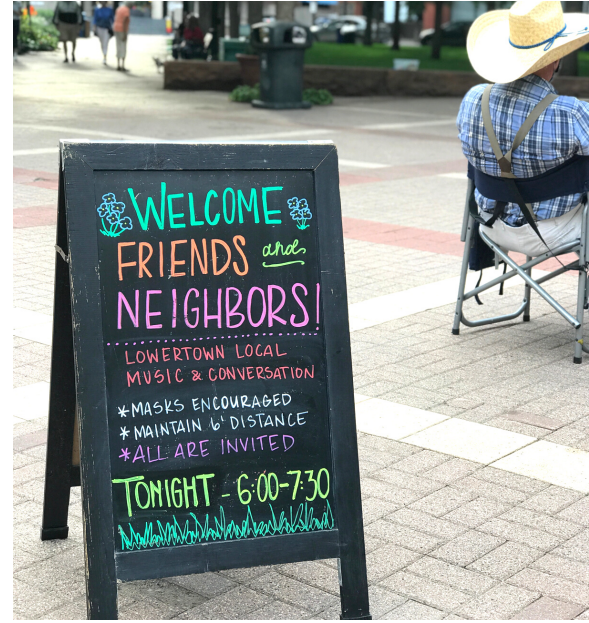 WELCOME
FRIENDS and
NEIGHBORS!
LOWERTOWN LOCAL
MUSIC & CONVERSATION
*MASKS ENCOURAGED
*MAINTAIN 6' DISTANCE
*ALL ARE INVITED
TONIGHT - 6:00-7:30